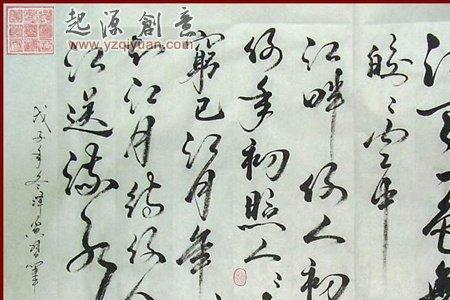 起源創意
www.yzqiyuan.com
江天一色無
皎〻空中
江畔何人初
何年初照人
窮已江月年
知江月待何人
江送流水
戊子年冬